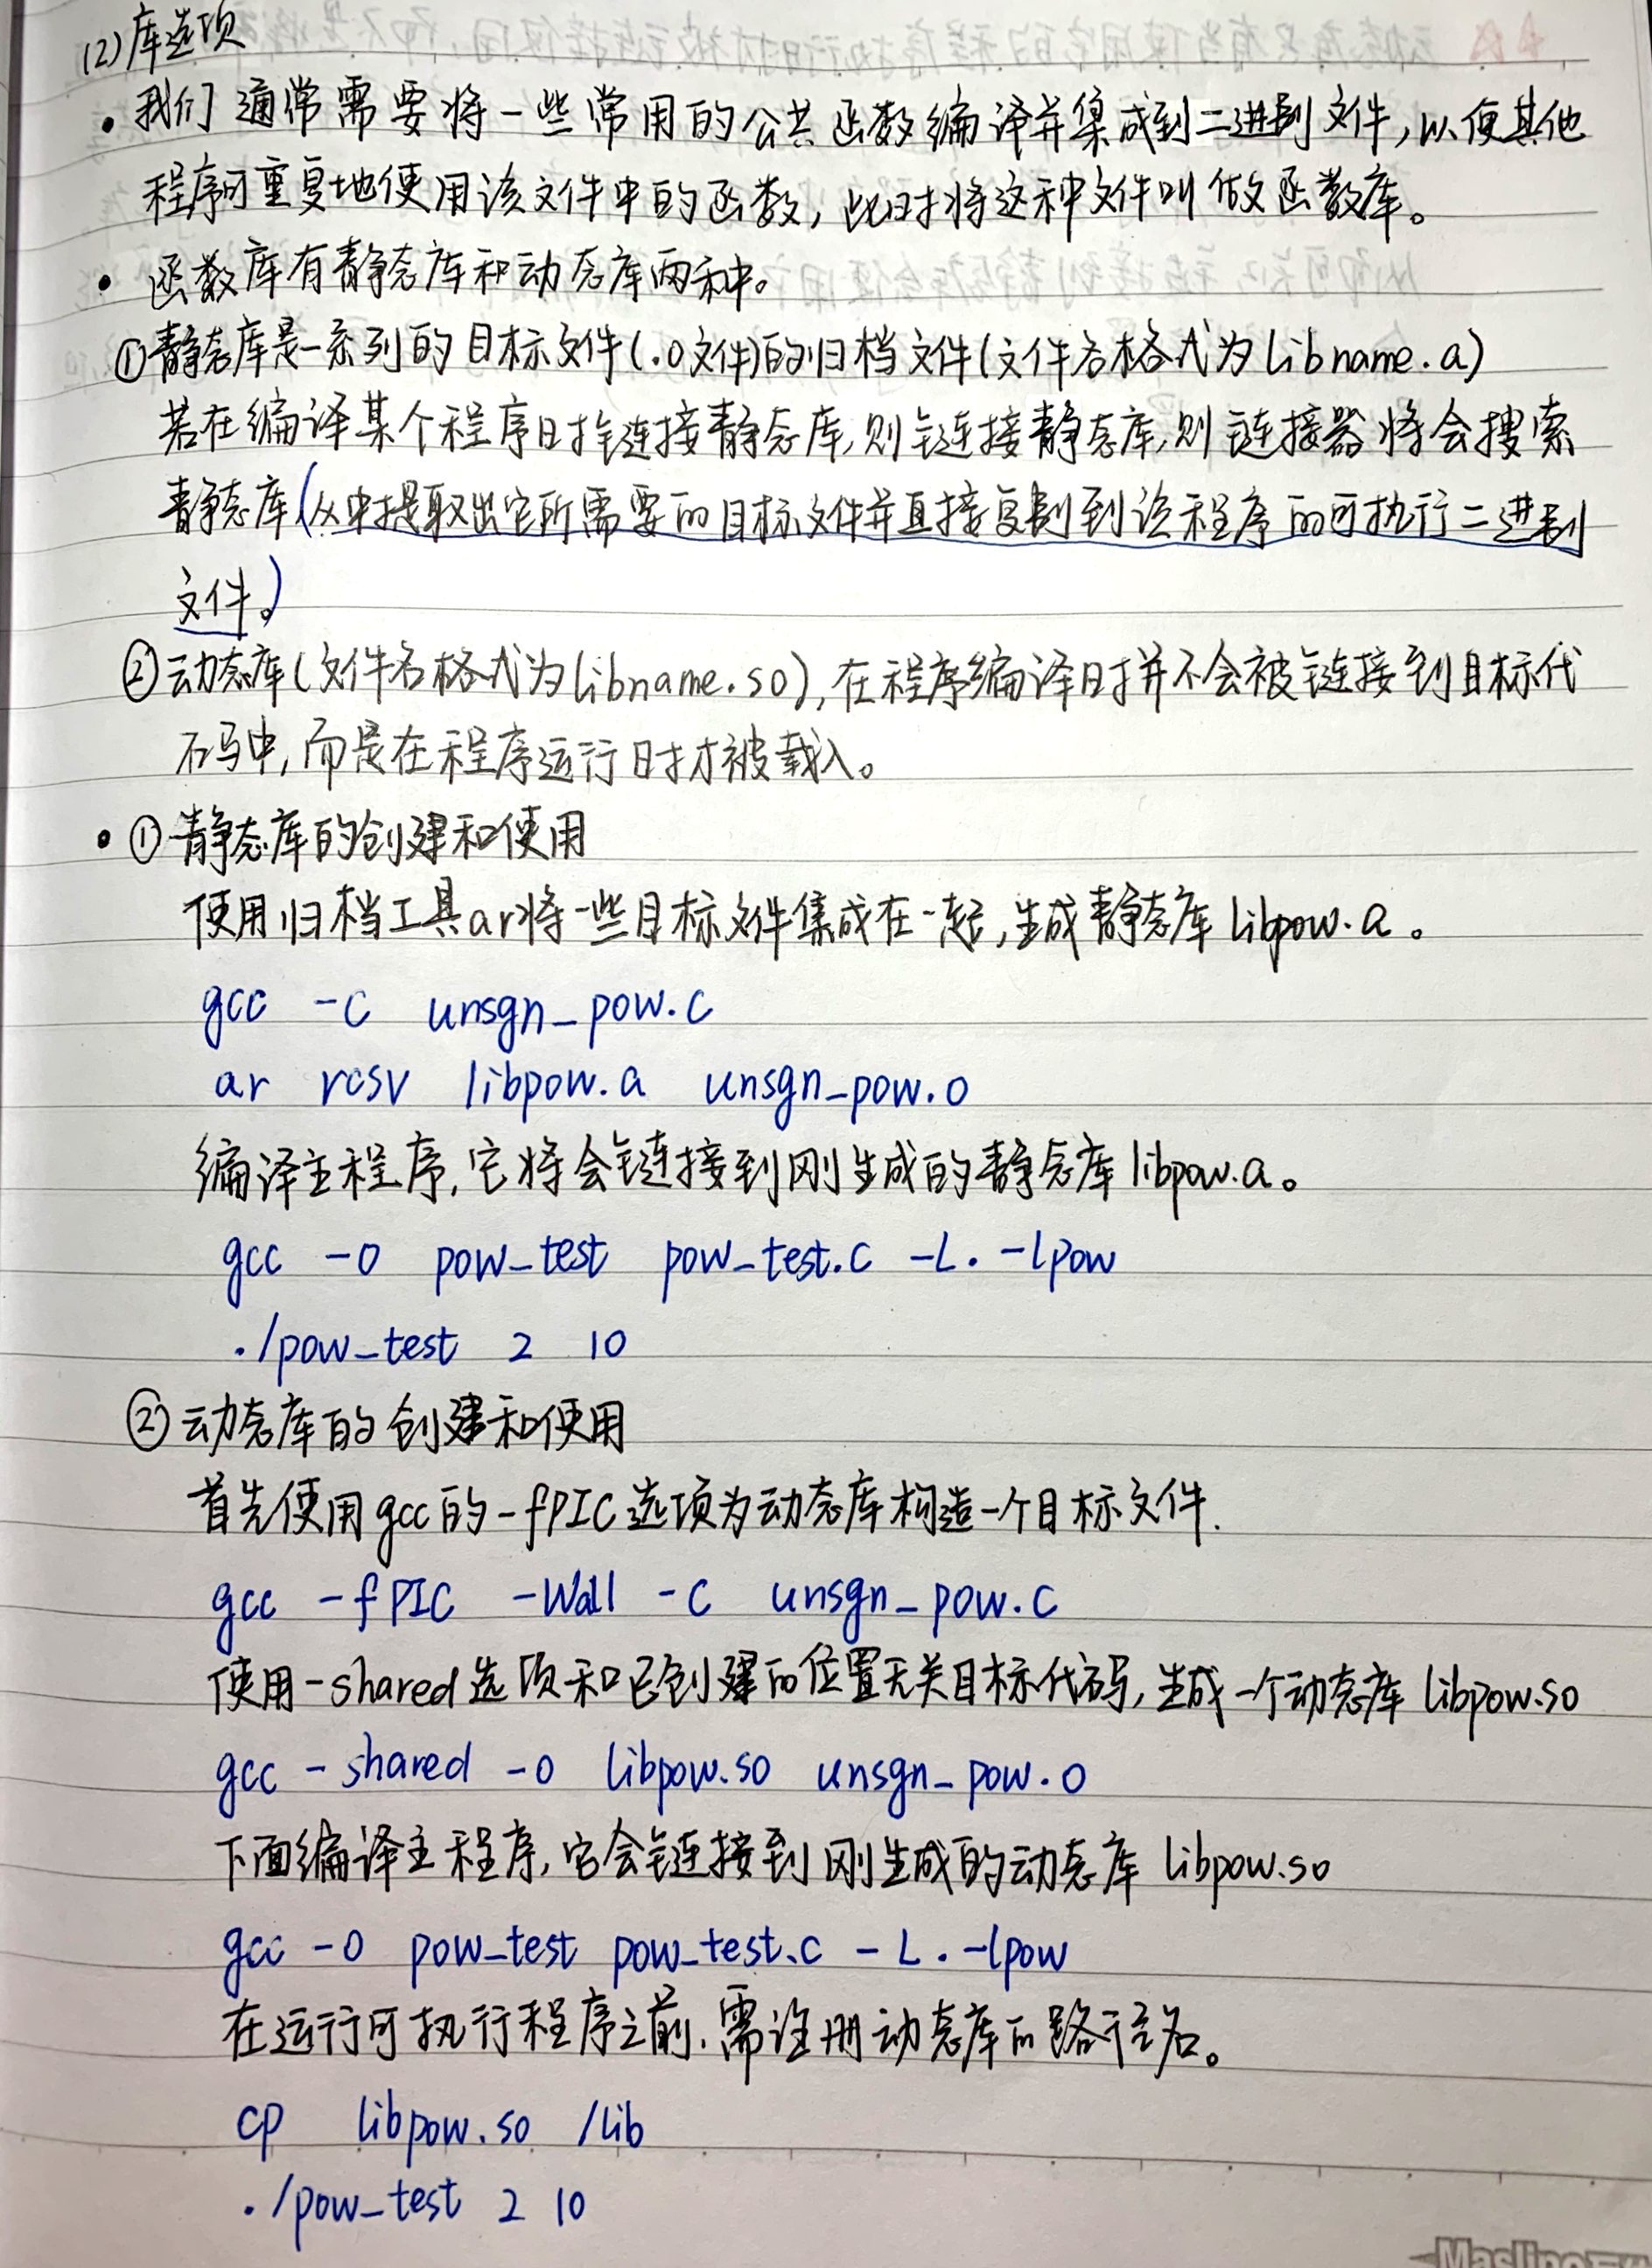 (2)库选项
• 我们通常需要将一些常用的公共函数编译并集成到二进制文件,以便其他
程序可重复地使用该文件中的函数,此时将这种文件叫做函数库。
• 函数库有静态库和动态库两种。
①静态库是一系列的目标文件(.o文件)的归档文件(文件名格式为libname.a)
若在编译某个程序时链接静态库,则链接静态库,则链接器将会搜索
静态库(从中提取出它所需要的目标文件并直接复制到该程序的可执行二进制
文件。)
②动态库(文件名格式为libname.so),在程序编译时并不会被链接到目标代
码中,而是在程序运行时才被载入。
• ①静态库的创建和使用
使用归档工具ar将一些目标文件集成在一起,生成静态库libpow.a。
gcc -c unsgn_pow.c
ar rcsv libpow.a unsgn_pow.o
编译主程序,它将会链接到刚生成的静态库libpow.a。
gcc -o pow_test pow_test.c -L. -lpow
./pow_test 2 10
②动态库的创建和使用
首先使用gcc的-fPIC选项为动态库构造一个目标文件.
gcc -fPIC -Wall -c unsgn_pow.c
使用-shared选项和已创建的位置无关目标代码,生成一个动态库libpow.so
gcc -shared -o libpow.so unsgn_pow.o
下面编译主程序,它会链接到刚生成的动态库libpow.so
gcc -o pow_test pow_test.c -L. -lpow
在运行可执行程序之前,需注册动态库的路径名。
cp libpow.so /lib
./pow_test 2 10